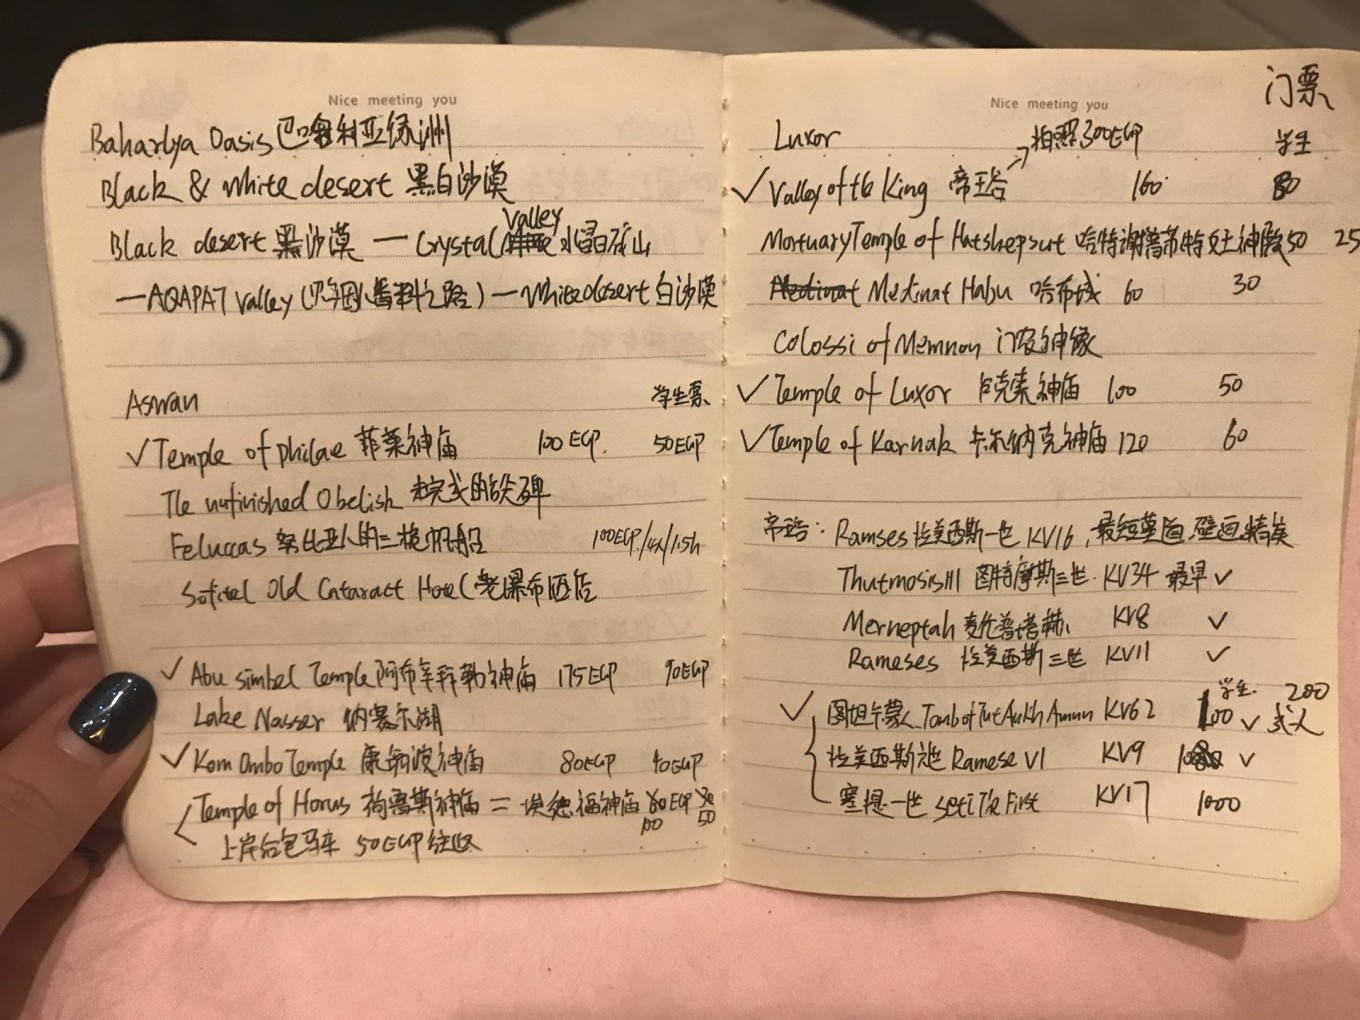 Nice meeting you
Baharlya Oasis 巴哈利亚绿洲
Black & White desert 黑白沙漠
Black desert 黑沙漠 — Crystal Valley 水晶矿山
— AQAPAT Valley ( ) — White desert 白沙漠
Aswan 学生票
✓ Temple of philae 菲莱神庙 100 EGP. 50 EGP
The unfinished Obelish 未完成的方尖碑
Feluccas 努比亚人的三桅帆船 100EGP/4人/1.5h
Sofitel Old Cataract Hotel 老瀑布酒店
✓ Abu simbel Temple 阿布辛拜勒神庙 175 EGP 90EGP
Lake Nasser 纳赛尔湖
✓ Kom Ombo Temple 康翁波神庙 80EGP 40EGP
Temple of Horus 荷露斯神庙 = 埃德福神庙 80EGP 30
100 50
上岸后包马车 50EGP 往返
Nice meeting you
门票
Luxor 拍照300EGP 学生
✓ Valley of the King 帝王谷 160 80
Mortuary Temple of Hatshepsut 哈特谢普苏特女王神殿 50 25
Medinat Medinat Habu 哈布城 60 30
Colossi of Memnon 门农神像
✓ Temple of Luxor 卢克索神庙 100 50
✓ Temple of Karnak 卡尔纳克神庙 120 60
帝王谷: Ramses 拉美西斯一世 KV16, 最短墓道,壁画精美
Thutmosis III 图特摩斯三世. KV34 最早 ✓
Merneptah 麦伦普塔赫 KV8 ✓
Rameses 拉美西斯三世 KV11 ✓
学生. 200
✓ 图坦卡蒙 Tomb of Tut Ankh Amun KV62 100 ✓ 成人
拉美西斯六世 Ramese VI KV9 ✓
塞提一世 Seti The First KV17 1000